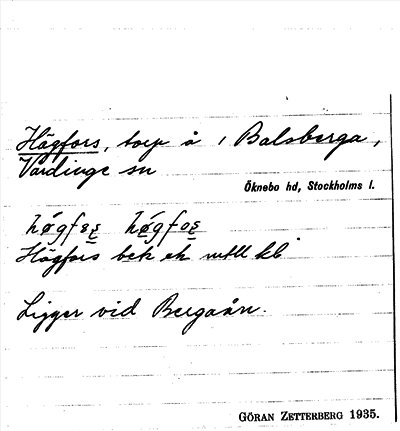 Högfors, torp å 1 Balsberga,
Vårdinge sn
Öknebo hd, Stockholms l.
Högfors bek ek mtll kb
Ligger vid Bergaån.
GÖRAN ZETTERBERG 1935.